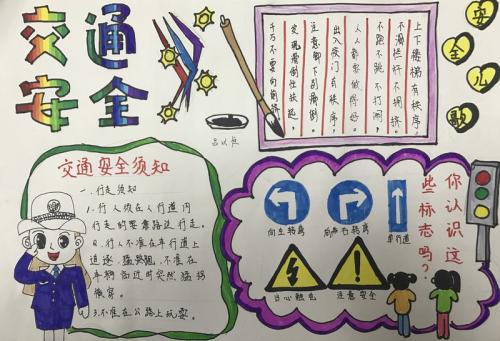 交通
安全
安全儿歌
上下楼梯有秩序，
不滑栏杆不拥挤。
不跑不跳不打闹，
人人都要做得好。
出入校门有秩序，
注意脚下别滑倒。
发现滑倒快扶起，
千万不要向前挤。
吕以恒
交通安全须知
一.行走须知
1.行人须在人行道内
行走的要靠路边行走。
2.行人不准在车行道上
追逐，猛跑，不准在
车辆临近时突然猛拐
横穿。
3.不准在公路上玩耍。
你认识这
些标志吗？
向左转弯
向右转弯
单行道
当心触电
注意安全